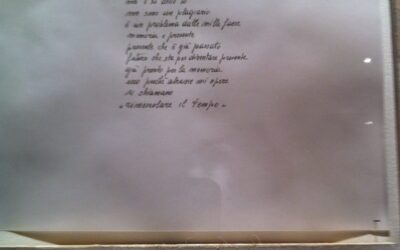 non sono un plagiario
è un problema dalle mille facce
memoria e presente
presente che è già passato
futuro che sta per diventare presente
già pronto per la memoria.
ecco perché alcune mie opere
si chiamano
"rimemorare il tempo"